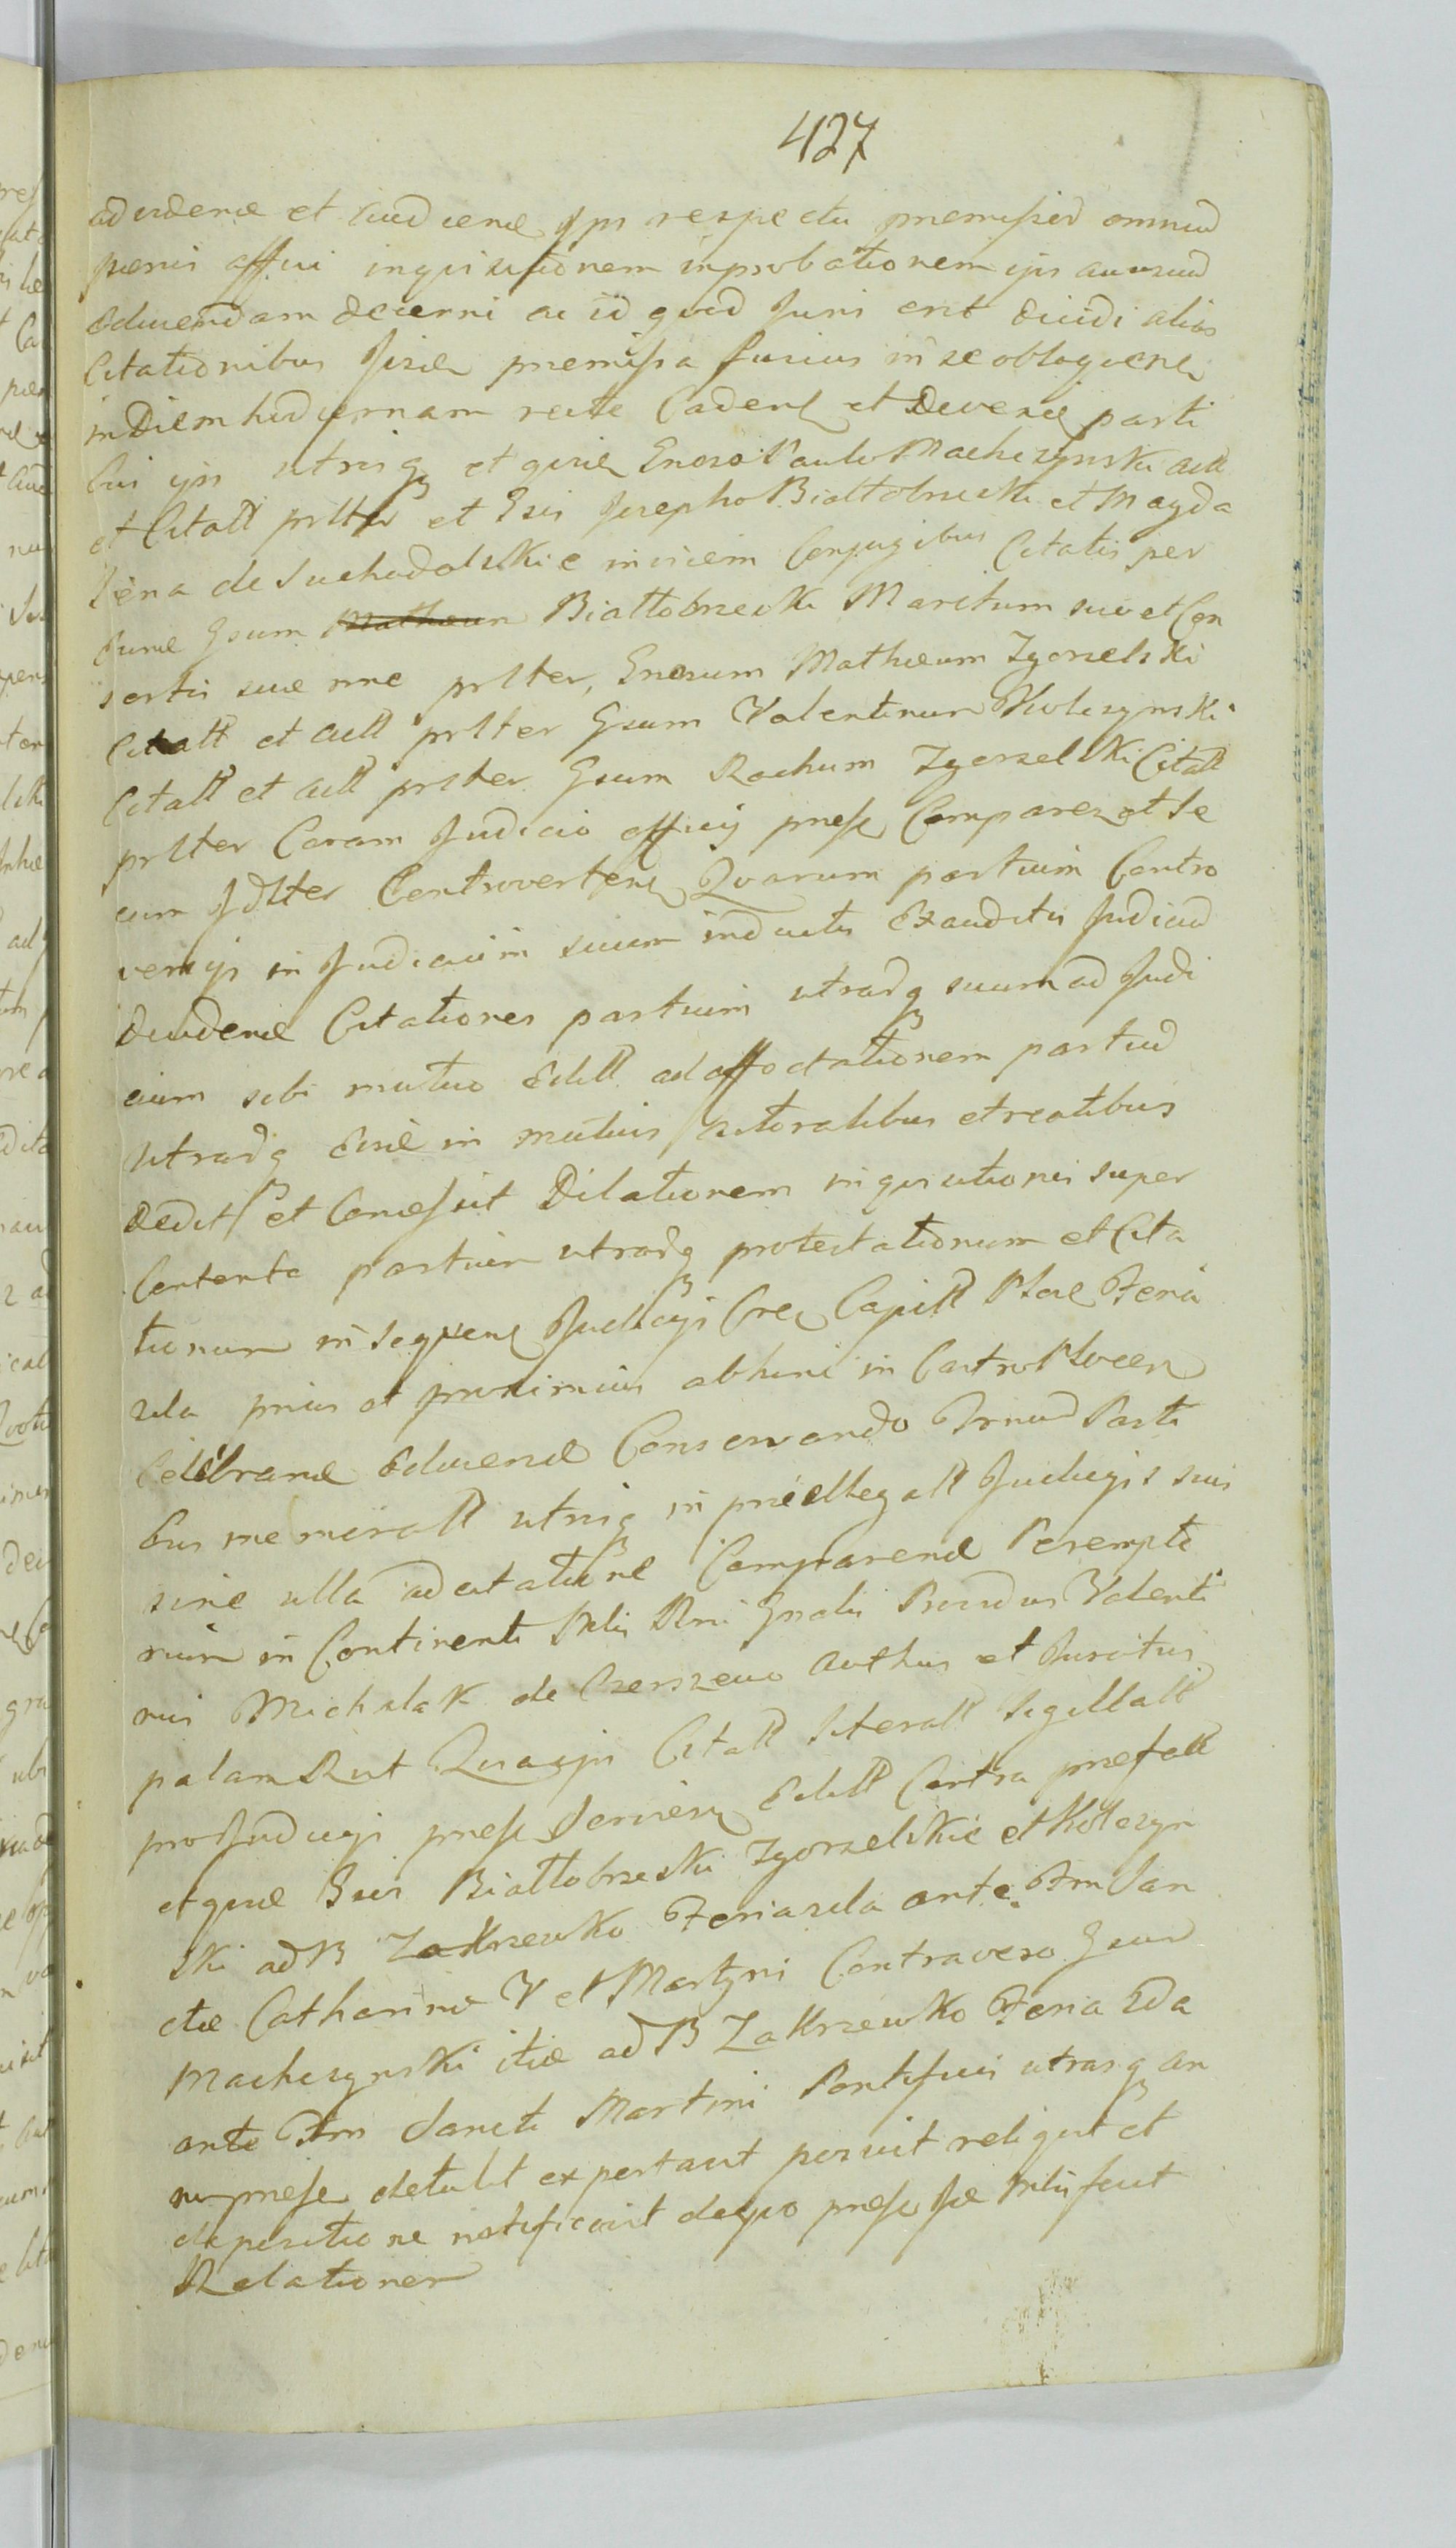 427
ad videnđ et audienđ ipsi respectu premissoɽ omniuɱ
penis affici inquisitionem inprobationem ejus ausuuɱ
educendam decerni ac id quod Juris erit dicidi alias
Citationibus hisce premissa fusius in se obloquenᵉ
in Diem hodiernam recte Cadenᵉ et Devenᵉ parti
bus ipsis utrisqꝫ et quide Gnoso Paulo Machczynski act
et Citatt prltter et Gsis Josepho Białłobrzeski et Magda
lena de Suchodolskie invicem Conjugibus Citatis per
eund Gsum Białłobrzeski Maritum suo et Con
sortis suæ nne prltter, Gnosum Mathæum Zgorzelski
Citatt et actt prltter Gsum Valentinum Kolczynski
Citatt et actt prltter Gsum Rochum Zgorzelski Citatt
prltter Coram Judicio officij prese Comparen et se
cum Jdltter Controverten Quarum partium Contro
versijs in Judicium suum inductis Exauditis Judiciuɱ
Dividend Citationes partium utrarqꝫ suum ad Judi
cium sibi mutuo editt ad affectationem partiuɱ
utrarqꝫ eine in mutuis actoratibus et reatibus
Dedit et Concessit Dilationem inquisitionis super
Contenta partium utrarqꝫ protestationum et Cita
tionum in sequen Judicijs Cre Capitt Ploc Feria
2da prius et proximius abhinc in Castro Plocen
Celebrand educend Conservando Trnuɱ Parti
bus memoratt utrisqꝫ in præallegatt Judicijs suis
sine ulla adcitatione Comparend Perempto
rium in Continenti Mltis Rni Gnalis Providus Valenti
nus Michalak de Czerszewo authus et Juratus
palam Rut Quaijs Citatt literatt Sigillatt
pro Judicijs prese Servien Editt Contra prefatt
et quid Gsis Białłobrzeski Zgorzelskie et Kolczyn
ski ad B Zakrzewko Feria 2da ante Ftm San
ctæ Catharinæ V et Martyris Contra vero Gsum
Machczynski itid ad B Zakrzewko Feria 2da
ante Ftm Sancti Martini Pontificis utrasqꝫ an
ni prese detulit expertavit posuit reliquit et
depositione notificavit de quo prese se rite fecit
Relationem